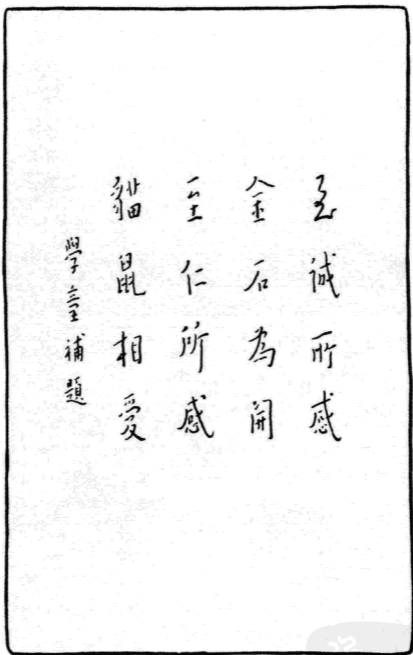 至誠所感
金石為開
至仁所感
貓鼠相愛
學童補題